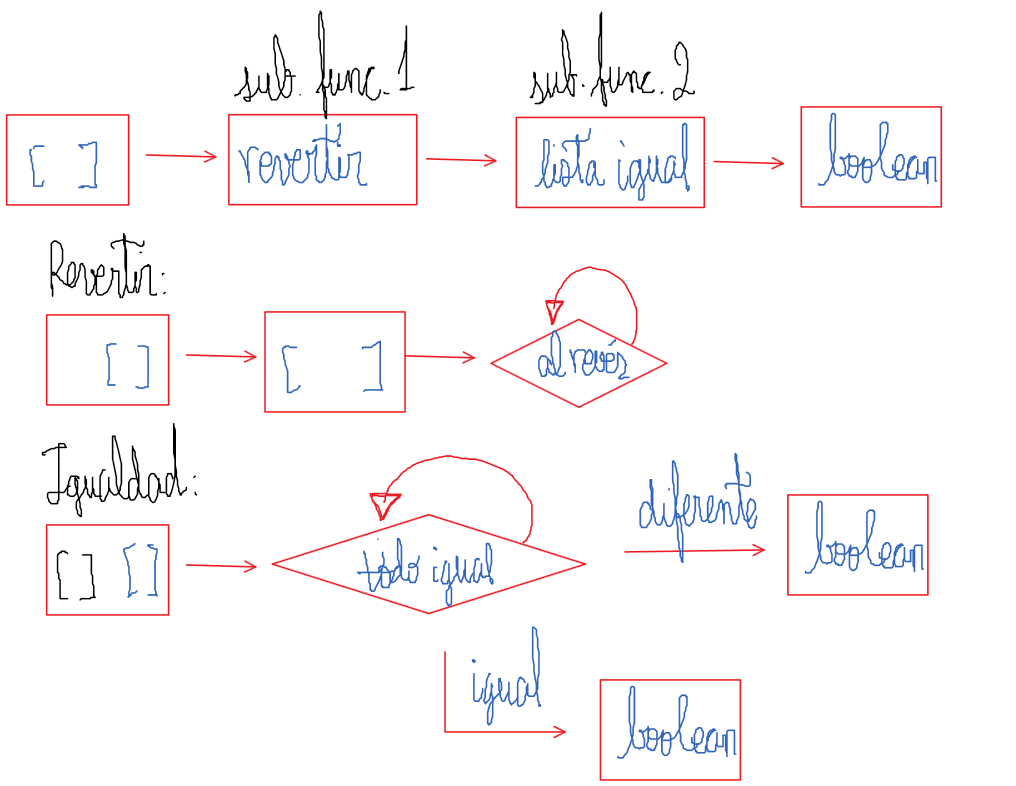 sub. func. 1 sub. func. 2
[ ] revertir lista igual boolean
Revertir:
[ ] [ ] al revés
Igualdad:
[ ] [ ] todo igual diferente boolean
igual boolean